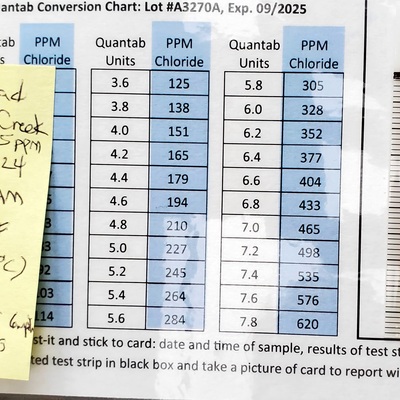 antab Conversion Chart: Lot #A3270A, Exp. 09/2025
tab PPM Quantab PPM Quantab PPM
Chloride Units Chloride Units Chloride
3.6 125 5.8 305
3.8 138 6.0 328
4.0 151 6.2 352
4.2 165 6.4 377
4.4 179 6.6 404
4.6 194 6.8 433
4.8 210 7.0 465
5.0 227 7.2 498
92 5.2 245 7.4 535
103 5.4 264 7.6 576
114 5.6 284 7.8 620
ad
Creek
5 ppm
24
AM
°C)
st-it and stick to card: date and time of sample, results of test st
ted test strip in black box and take a picture of card to report wi